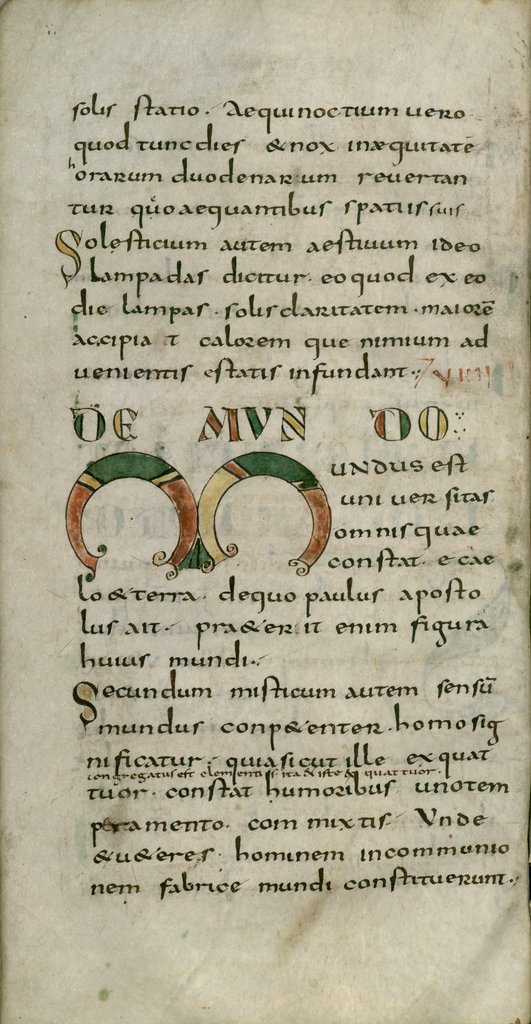 solis statio. Aequinoctium uero
quod tunc dies & nox in aequitatē
horarum duodenarum reuertan
tur quo aequantibus spatiis suis
Solesticium autem aestiuum ideo
lampadas dicitur. eo quod ex eo
die lampas. solis claritatem. maiorē
accipia t calorem que nimium ad
uenientis estatis infundant. VIIII
DE MUNDO
Mundus est
uniuersitas
omnis quae
constat. e cae
lo & terra. de quo paulus aposto
lus ait. pra&erit enim figura
huius mundi.
Secundum misticum autem sensū
mundus conp&enter. homo sig
nificatur. quia sicut ille ex quat
congregatus est elementis ita & iste & quattuor.
tuor. constat humoribus uno tem
peramento. commixtis. Unde
& u&eres. hominem in communio
nem fabrice mundi constituerunt.